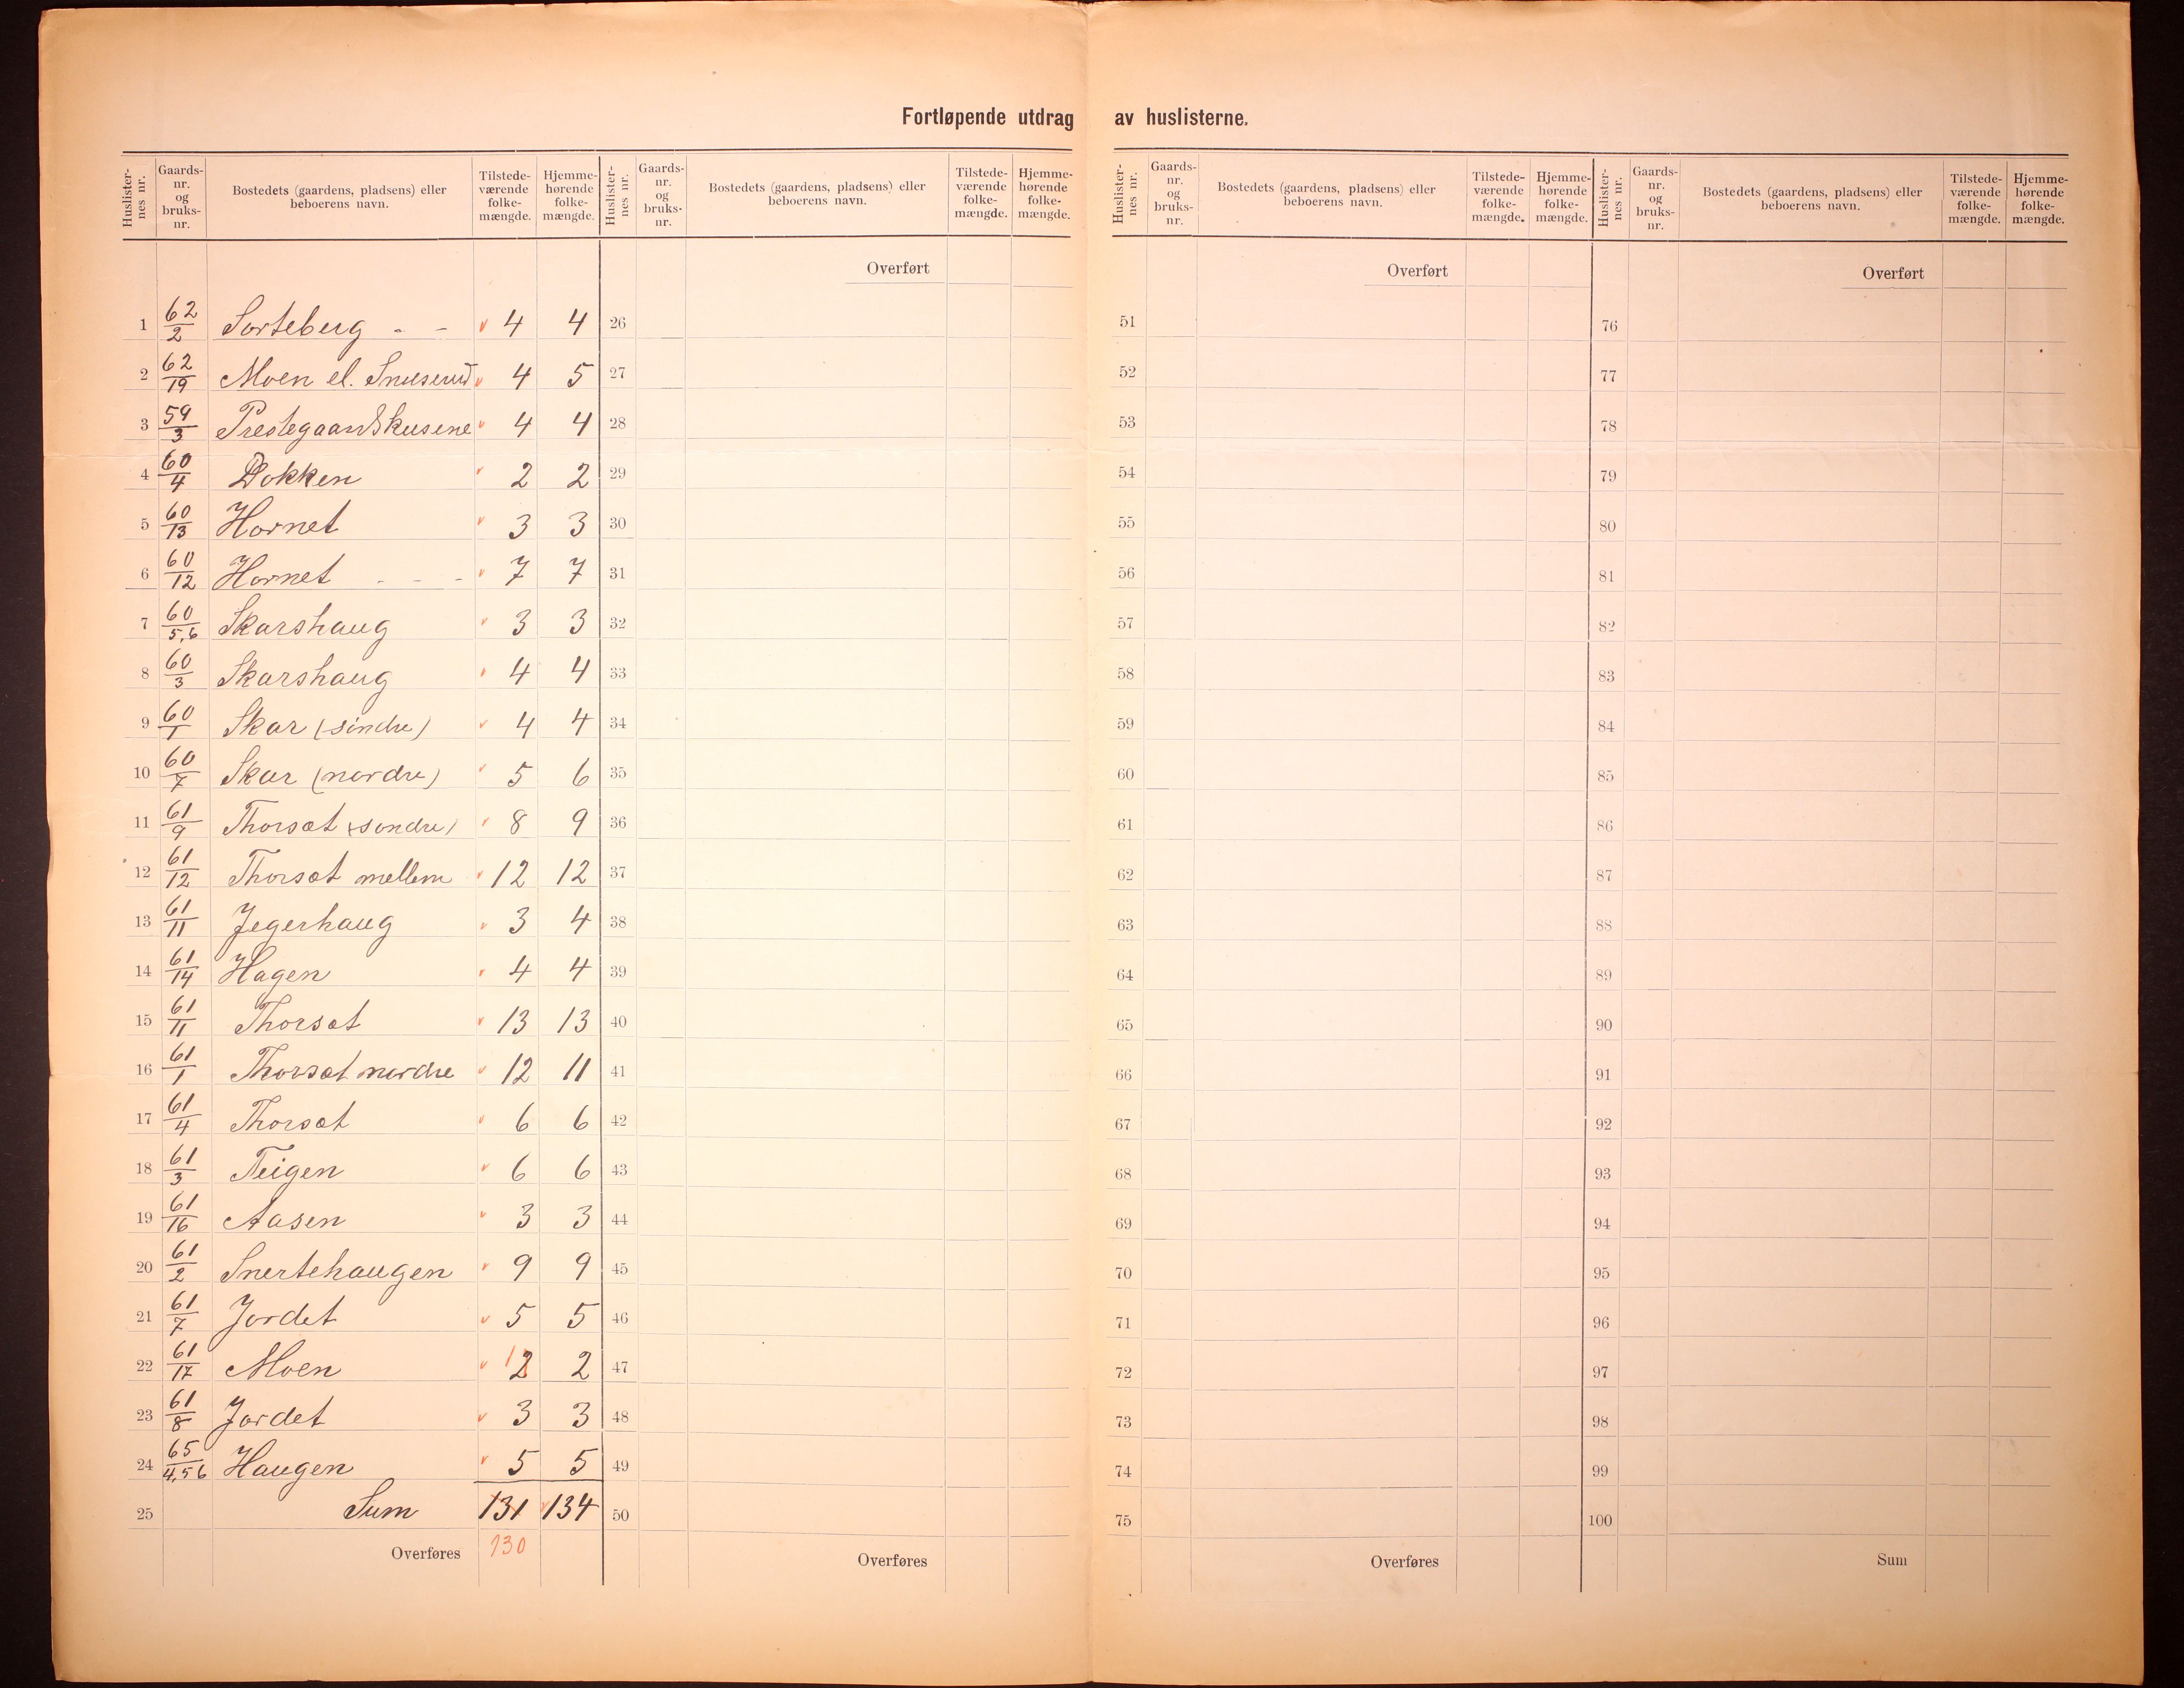 Fortløpende utdrag av huslisterne.
Huslisternes nr. | Gaardsnr. og bruksnr. | Bostedets (gaardens, pladsens) eller beboerens navn. | Tilstedeværende folkemængde. | Hjemmehørende folkemængde.
Huslisternes nr. | Gaardsnr. og bruksnr. | Bostedets (gaardens, pladsens) eller beboerens navn. | Tilstedeværende folkemængde. | Hjemmehørende folkemængde.
Huslisternes nr. | Gaardsnr. og bruksnr. | Bostedets (gaardens, pladsens) eller beboerens navn. | Tilstedeværende folkemængde. | Hjemmehørende folkemængde.
Huslisternes nr. | Gaardsnr. og bruksnr. | Bostedets (gaardens, pladsens) eller beboerens navn. | Tilstedeværende folkemængde. | Hjemmehørende folkemængde.
Overført Overført Overført
1 62/2 Sorteberg - - 4 4 26 51 76
2 62/19 Moen el. Snuserud 4 5 27 52 77
3 59/3 Prestegaardskusene 4 4 28 53 78
4 60/4 Dokken 2 2 29 54 79
5 60/13 Hornet 3 3 30 55 80
6 60/12 Hornet - - - 7 7 31 56 81
7 60/5,6 Skarshaug 3 3 32 57 82
8 60/3 Skarshaug 4 4 33 58 83
9 60/1 Skar (sindre) 4 4 34 59 84
10 60/7 Skar (nordre) 5 6 35 60 85
11 61/9 Thorsæt (søndre) 8 9 36 61 86
12 61/12 Thorsæt mellem 12 12 37 62 87
13 61/11 Jegerhaug 3 4 38 63 88
14 61/14 Hagen 4 4 39 64 89
15 61/11 Thorsæt 13 13 40 65 90
16 61/1 Thorsæt nordre 12 11 41 66 91
17 61/4 Thorsæt 6 6 42 67 92
18 61/3 Teigen 6 6 43 68 93
19 61/16 Aasen 3 3 44 69 94
20 61/2 Snertehaugen 9 9 45 70 95
21 61/7 Jordet 5 5 46 71 96
22 61/17 Moen 1 2 2 47 72 97
23 61/8 Jordet 3 3 48 73 98
24 65/4,5 6 Haugen 5 5 49 74 99
25 Sum 131 134 50 75 100
Overføres 130 Overføres Overføres Sum